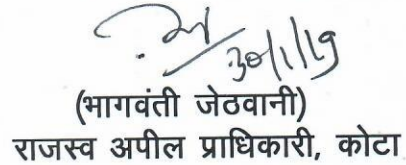 30/1/19
(भागवंती जेठवानी)
राजस्व अपील प्राधिकारी, कोटा